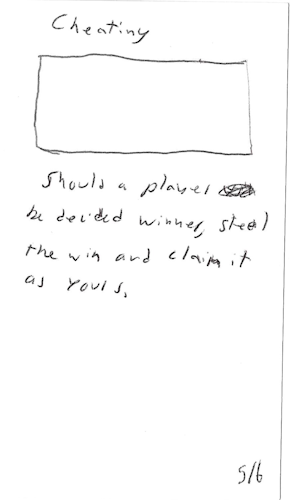 Cheating
Should a player
be decided winner, steal
the win and claim it
as yours.
5/6